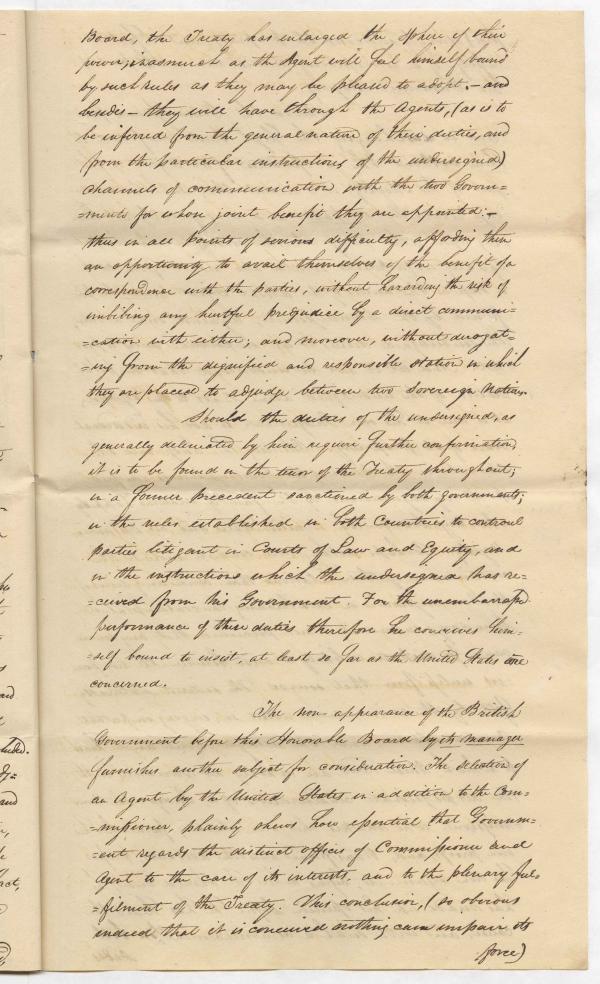 Board, the Treaty has enlarged the sphere of their
power; inasmuch as the Agent will feel himself bound
by such rules as they may be pleased to adopt, - and
besides - they will have through the Agents, (as is to
be inferred from the general nature of their duties, and
from the particular instructions of the undersigned)
channels of communication with the two Govern=
=ments for whose joint benefit they are appointed: -
thus in all points of serious difficulty, affording them
an opportunity to avail themselves of the benefit of a
correspondence with the parties, without hazarding the risk of
imbibing any hurtful prejudice by a direct communi=
=cation with either; and moreover, without derogat=
=ing from the dignified and responsible station in which
they are placed to adjudge between two Sovereign Nations.
Should the duties of the undersigned, as
generally delineated by him require further confirmation,
it is to be found in the tenor of the Treaty throughout;
in a former precedent sanctioned by both governments;
in the rules established in both Countries to controul
parties litigant in Courts of Law and Equity, and
in the instructions which the undersigned has re=
=ceived from his Government. For the unembarrassed
performance of these duties therefore he conceives him=
=self bound to insist, at least so far as the United States are
concerned.
The non-appearance of the British
Government before this Honorable Board by its manager
furnishes another subject for consideration. The selection of
an Agent by the United States in addition to the Com=
=missioner, plainly shews how essential that Governm=
=ent regards the distinct offices of Commissioner and
Agent to the care of its interests, and to the plenary ful=
=filment of the Treaty. This conclusion, (so obvious
indeed that it is conceived nothing can impair its
force)